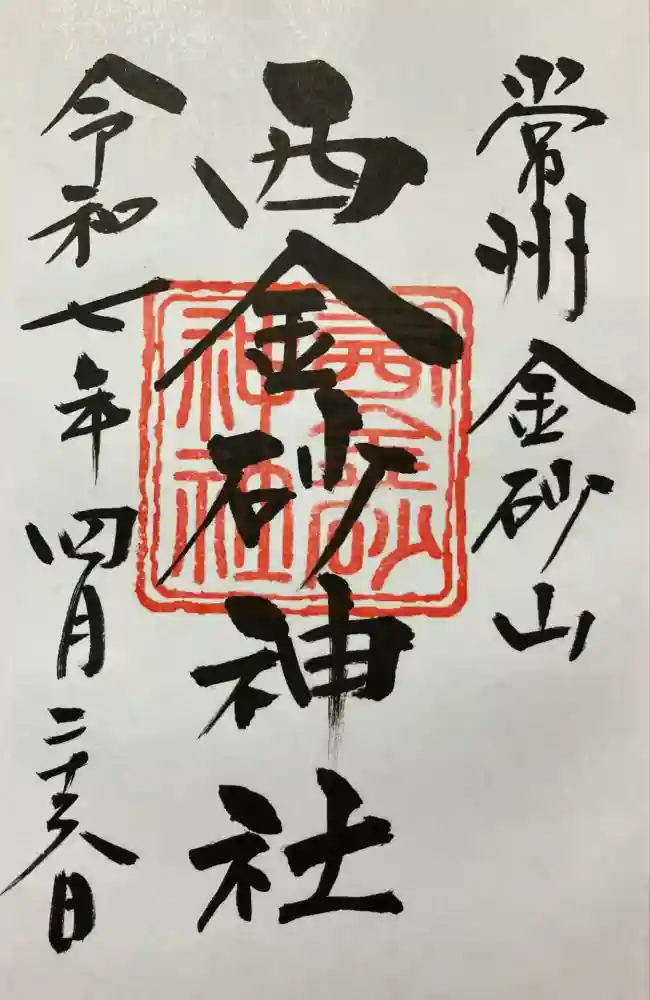 常州金砂山
西金砂神社
令和七年四月二十六日
西金砂
神社